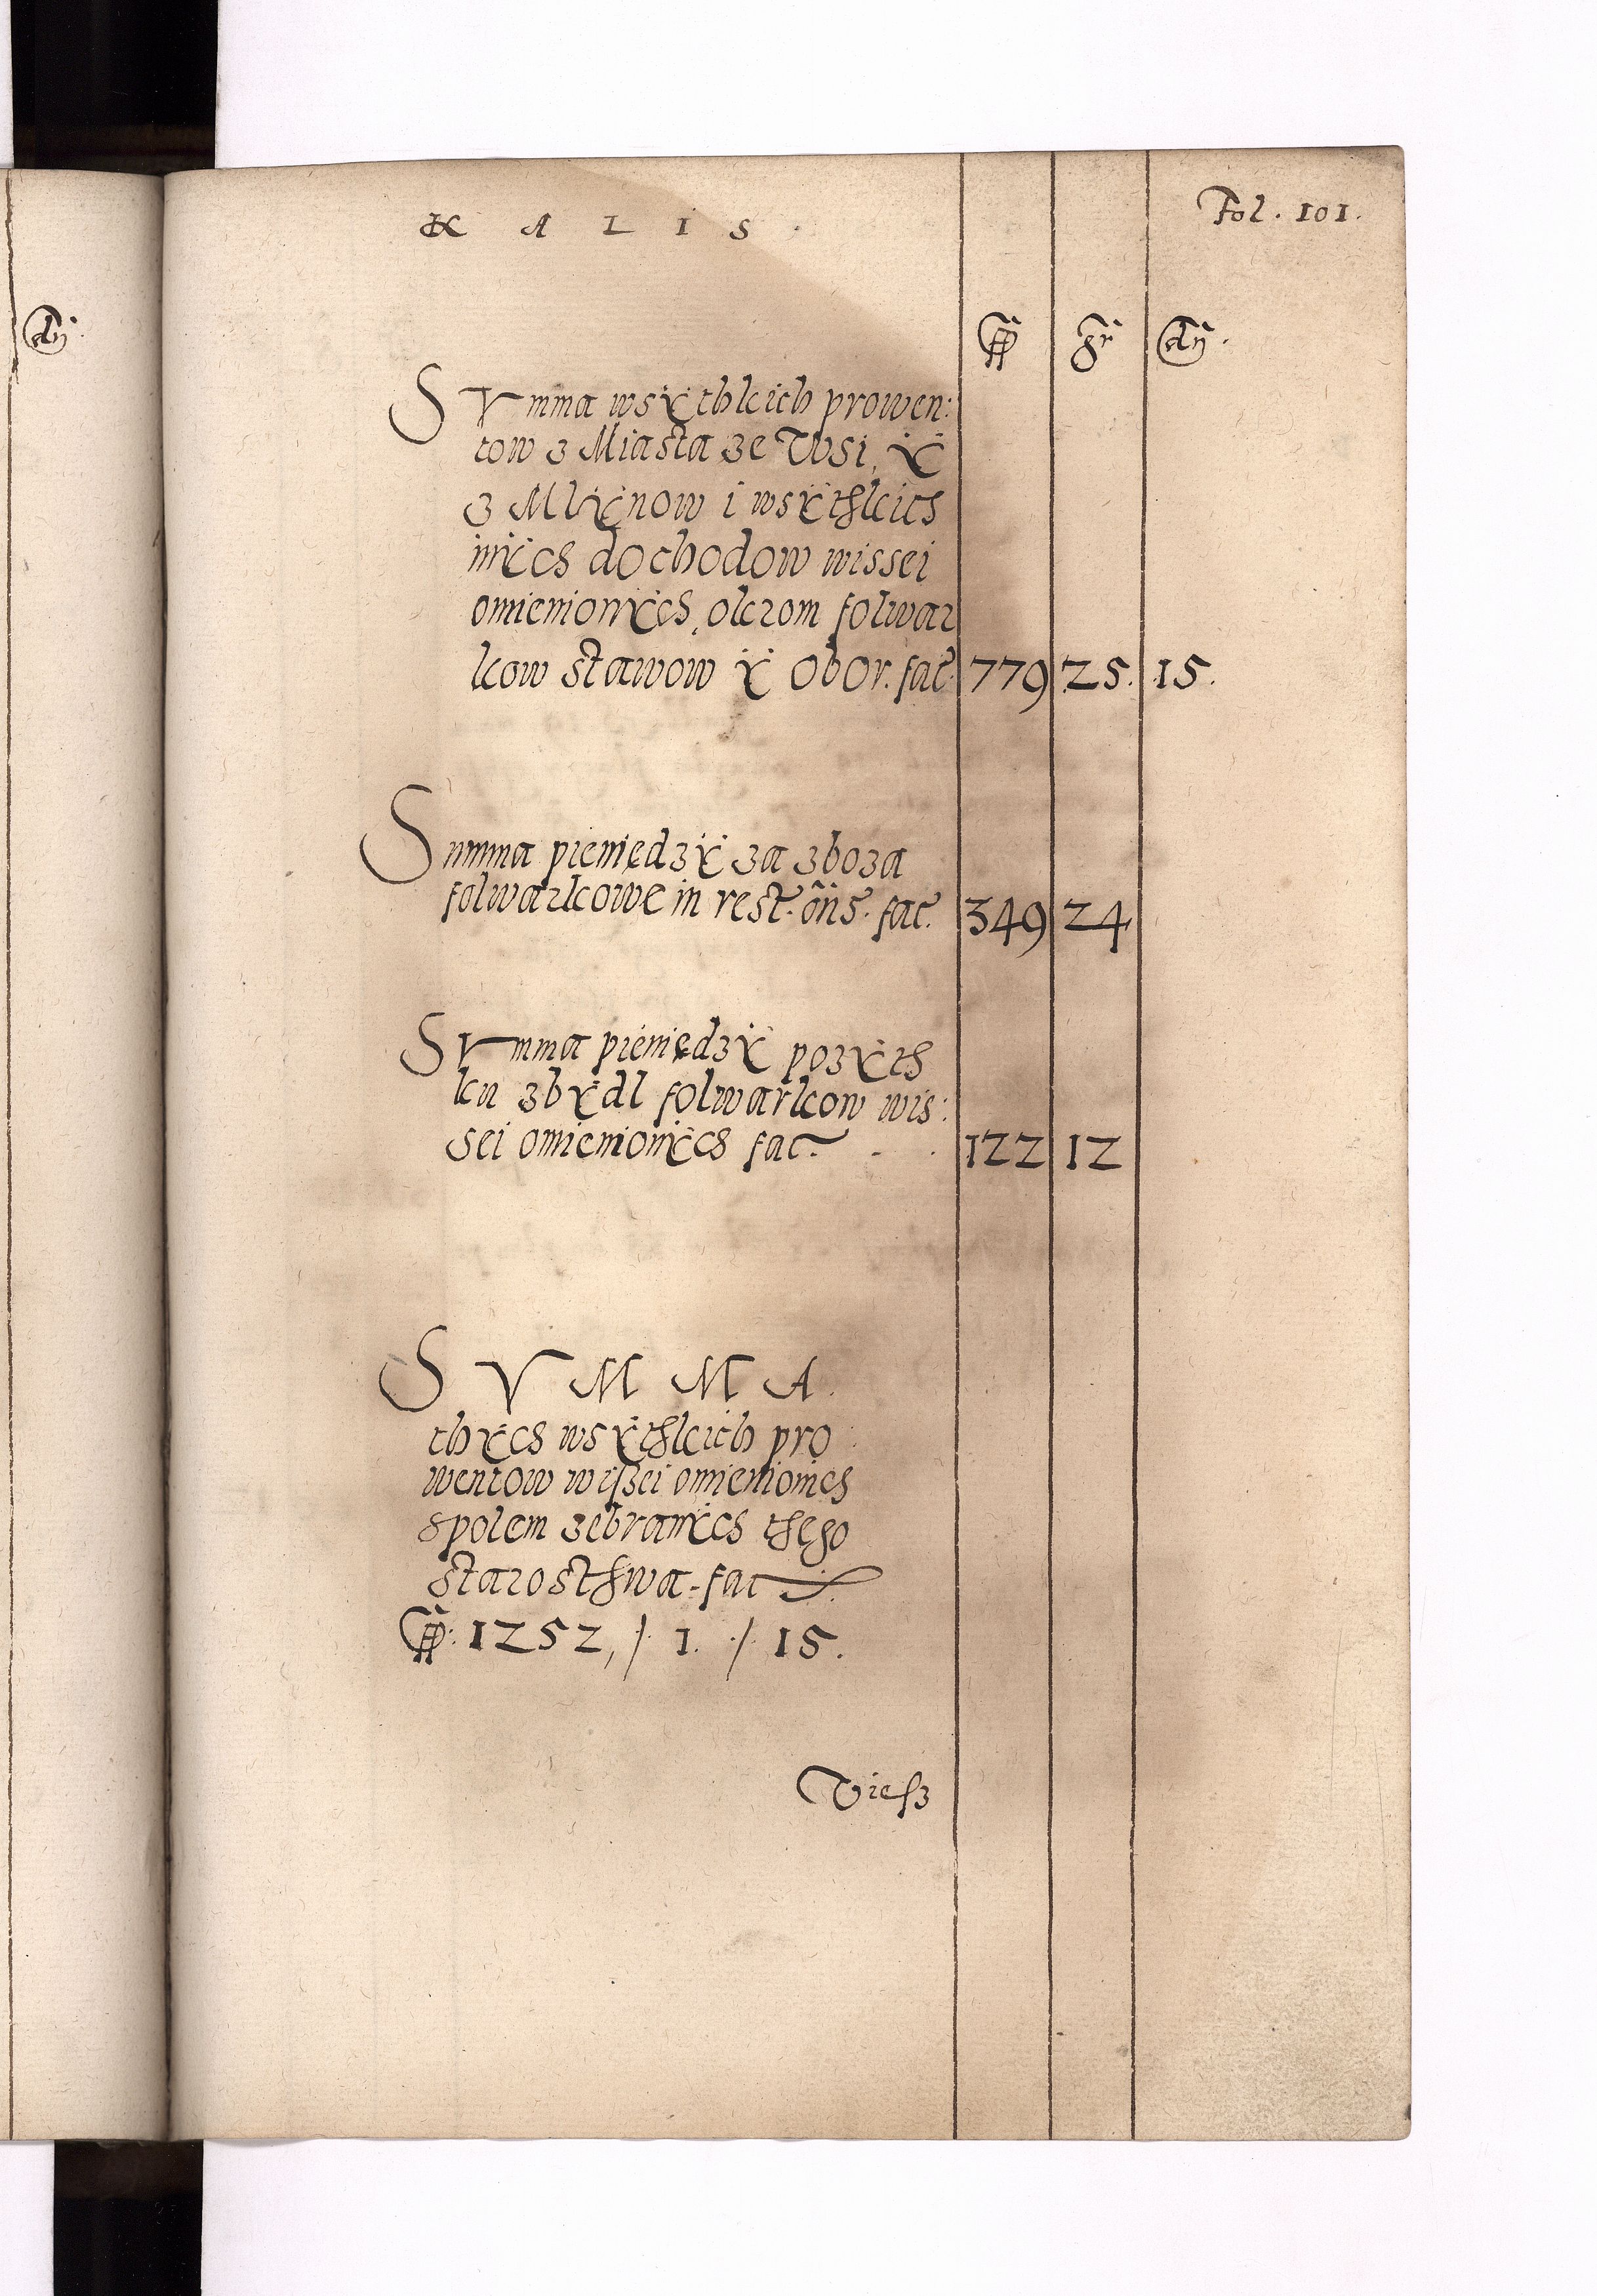 K A L I S
Fol. 101.
gr
SVmma wsÿthkich prowen:
tow z Miasta ze Wsi, ÿ
z Mlÿnow i wsÿthkich
inÿch dochodow wissei
omienionÿch, okrom folwar
kow stawow ÿ Obor. fac̃ 779 25. 15.
Summa pieniędzÿ za zboza
folwarkowe in rest. õns. fac̃. 349 24
SVmma pieniędzÿ pozÿth
ku z bÿdl folwarkow wis:
sei omienionÿch fac̃. 122 12
S V M M A.
thÿch wsÿthkich pro
wentow wißei omienionich
spolem zebranÿch thego
starosthwa - fac
1252, /. 1. ./. 15.
Viesz